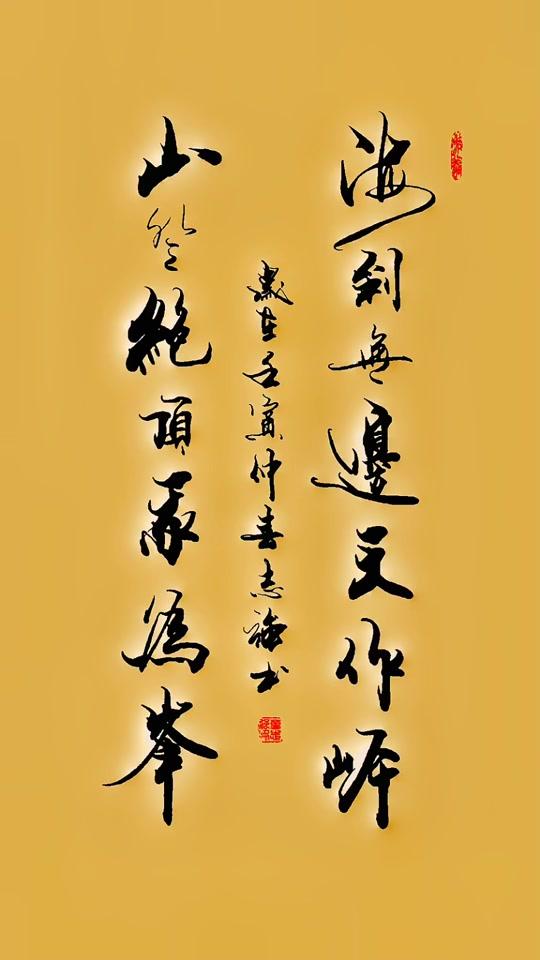 海到無邊天作岸
山登絕頂我為峯
歲在壬寅仲春志书